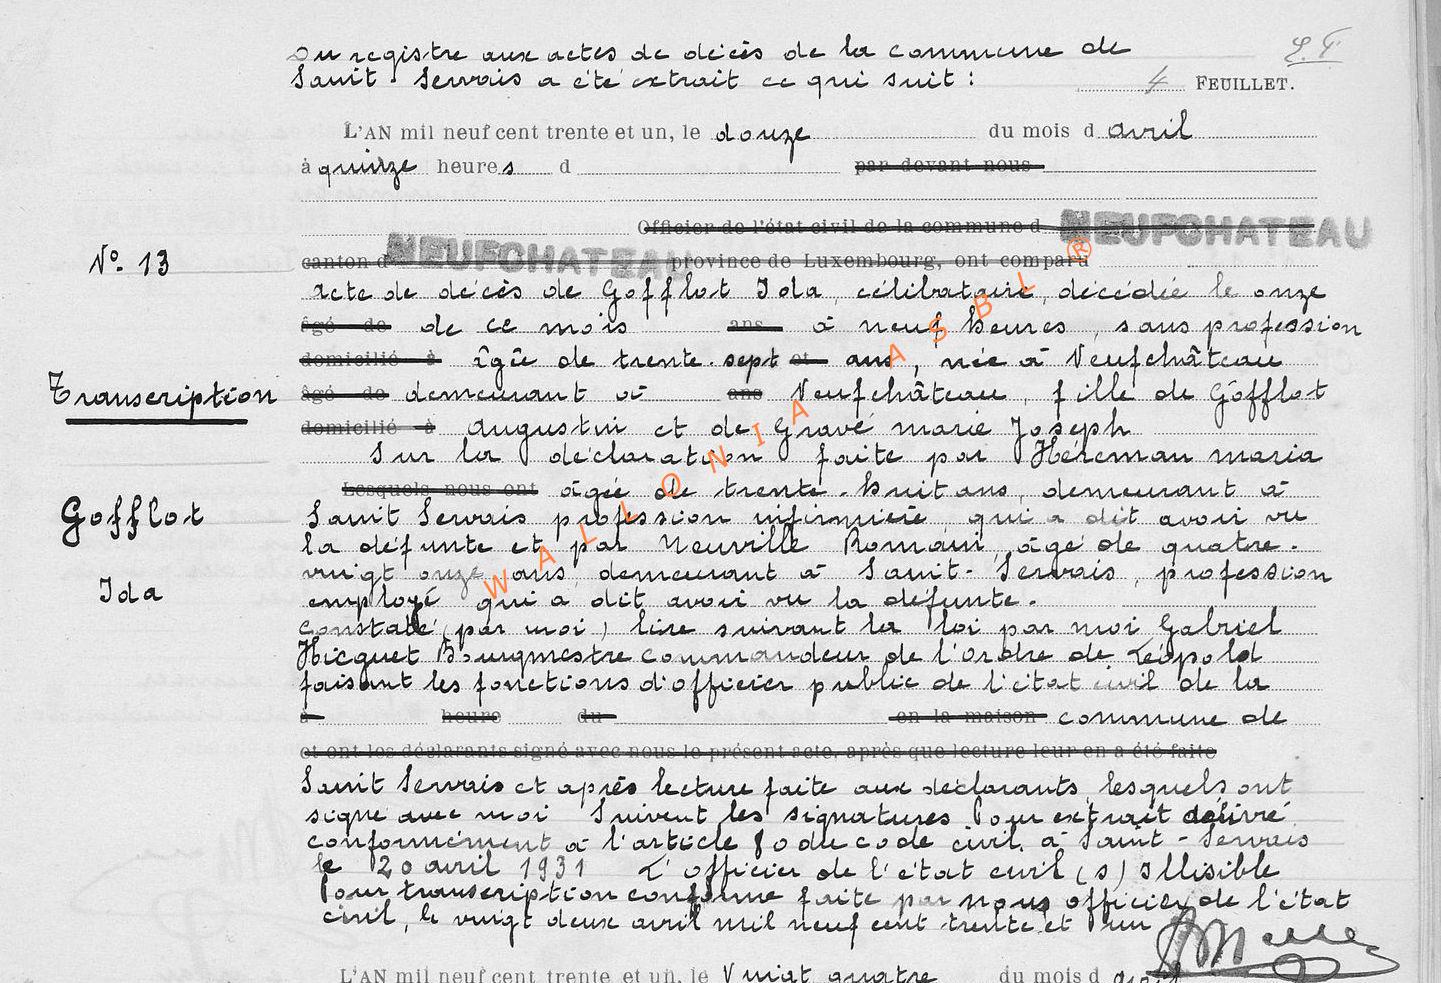 Du registre aux actes de décès de la commune de
Saint Servais a été extrait ce qui suit :
4 FEUILLET.
L'AN mil neuf cent trente et un, le douze du mois d avril
à quinze heures d par devant nous
Officier de l'état civil de la commune d NEUFCHATEAU
N° 13
canton d NEUFCHATEAU province de Luxembourg, ont comparu
Acte de décès de Gofflot Ida, célibataire, décédée le onze
âgé de de ce mois ans à neuf heures, sans profession
domicilié à âgée de trente-sept et ans, née à Neufchâteau
Transcription
âgé de demeurant à ans Neufchâteau, fille de Gofflot
domicilié à Augustin et de Gravé marie Joseph
Sur la déclaration faite par Héreman maria
Lesquels nous ont âgée de trente-huit ans, demeurant à
Gofflot
Saint Servais profession infirmière, qui a dit avoir vu
la défunte et par Neuville Romain, âgé de quatre-
vingt onze ans, demeurant à Saint-Servais, profession
Ida
employé qui a dit avoir vu la défunte.
Constaté (par moi) lire suivant la loi par moi Gabriel
Hicguet Bourgmestre commandeur de l'ordre de Léopold
faisant les fonctions d'officier public de l'état civil de la
à heure du en la maison commune de
et ont les déclarants signé avec nous le présent acte, après que lecture leur en a été faite
Saint Servais et après lecture faite aux déclarants, lesquels ont
signé avec moi Suivent les signatures Pour extrait délivré
conformément à l'article 80 du code civil à Saint-Servais
le 20 avril 1931 L'officier de l'état civil (s) Illisible
Pour transcription conforme faite par nous officier de l'état
civil, le vingt deux avril mil neuf cent trente et un
L'AN mil neuf cent trente et un, le Vingt quatre du mois d avril
WALLONIA ASBL ®